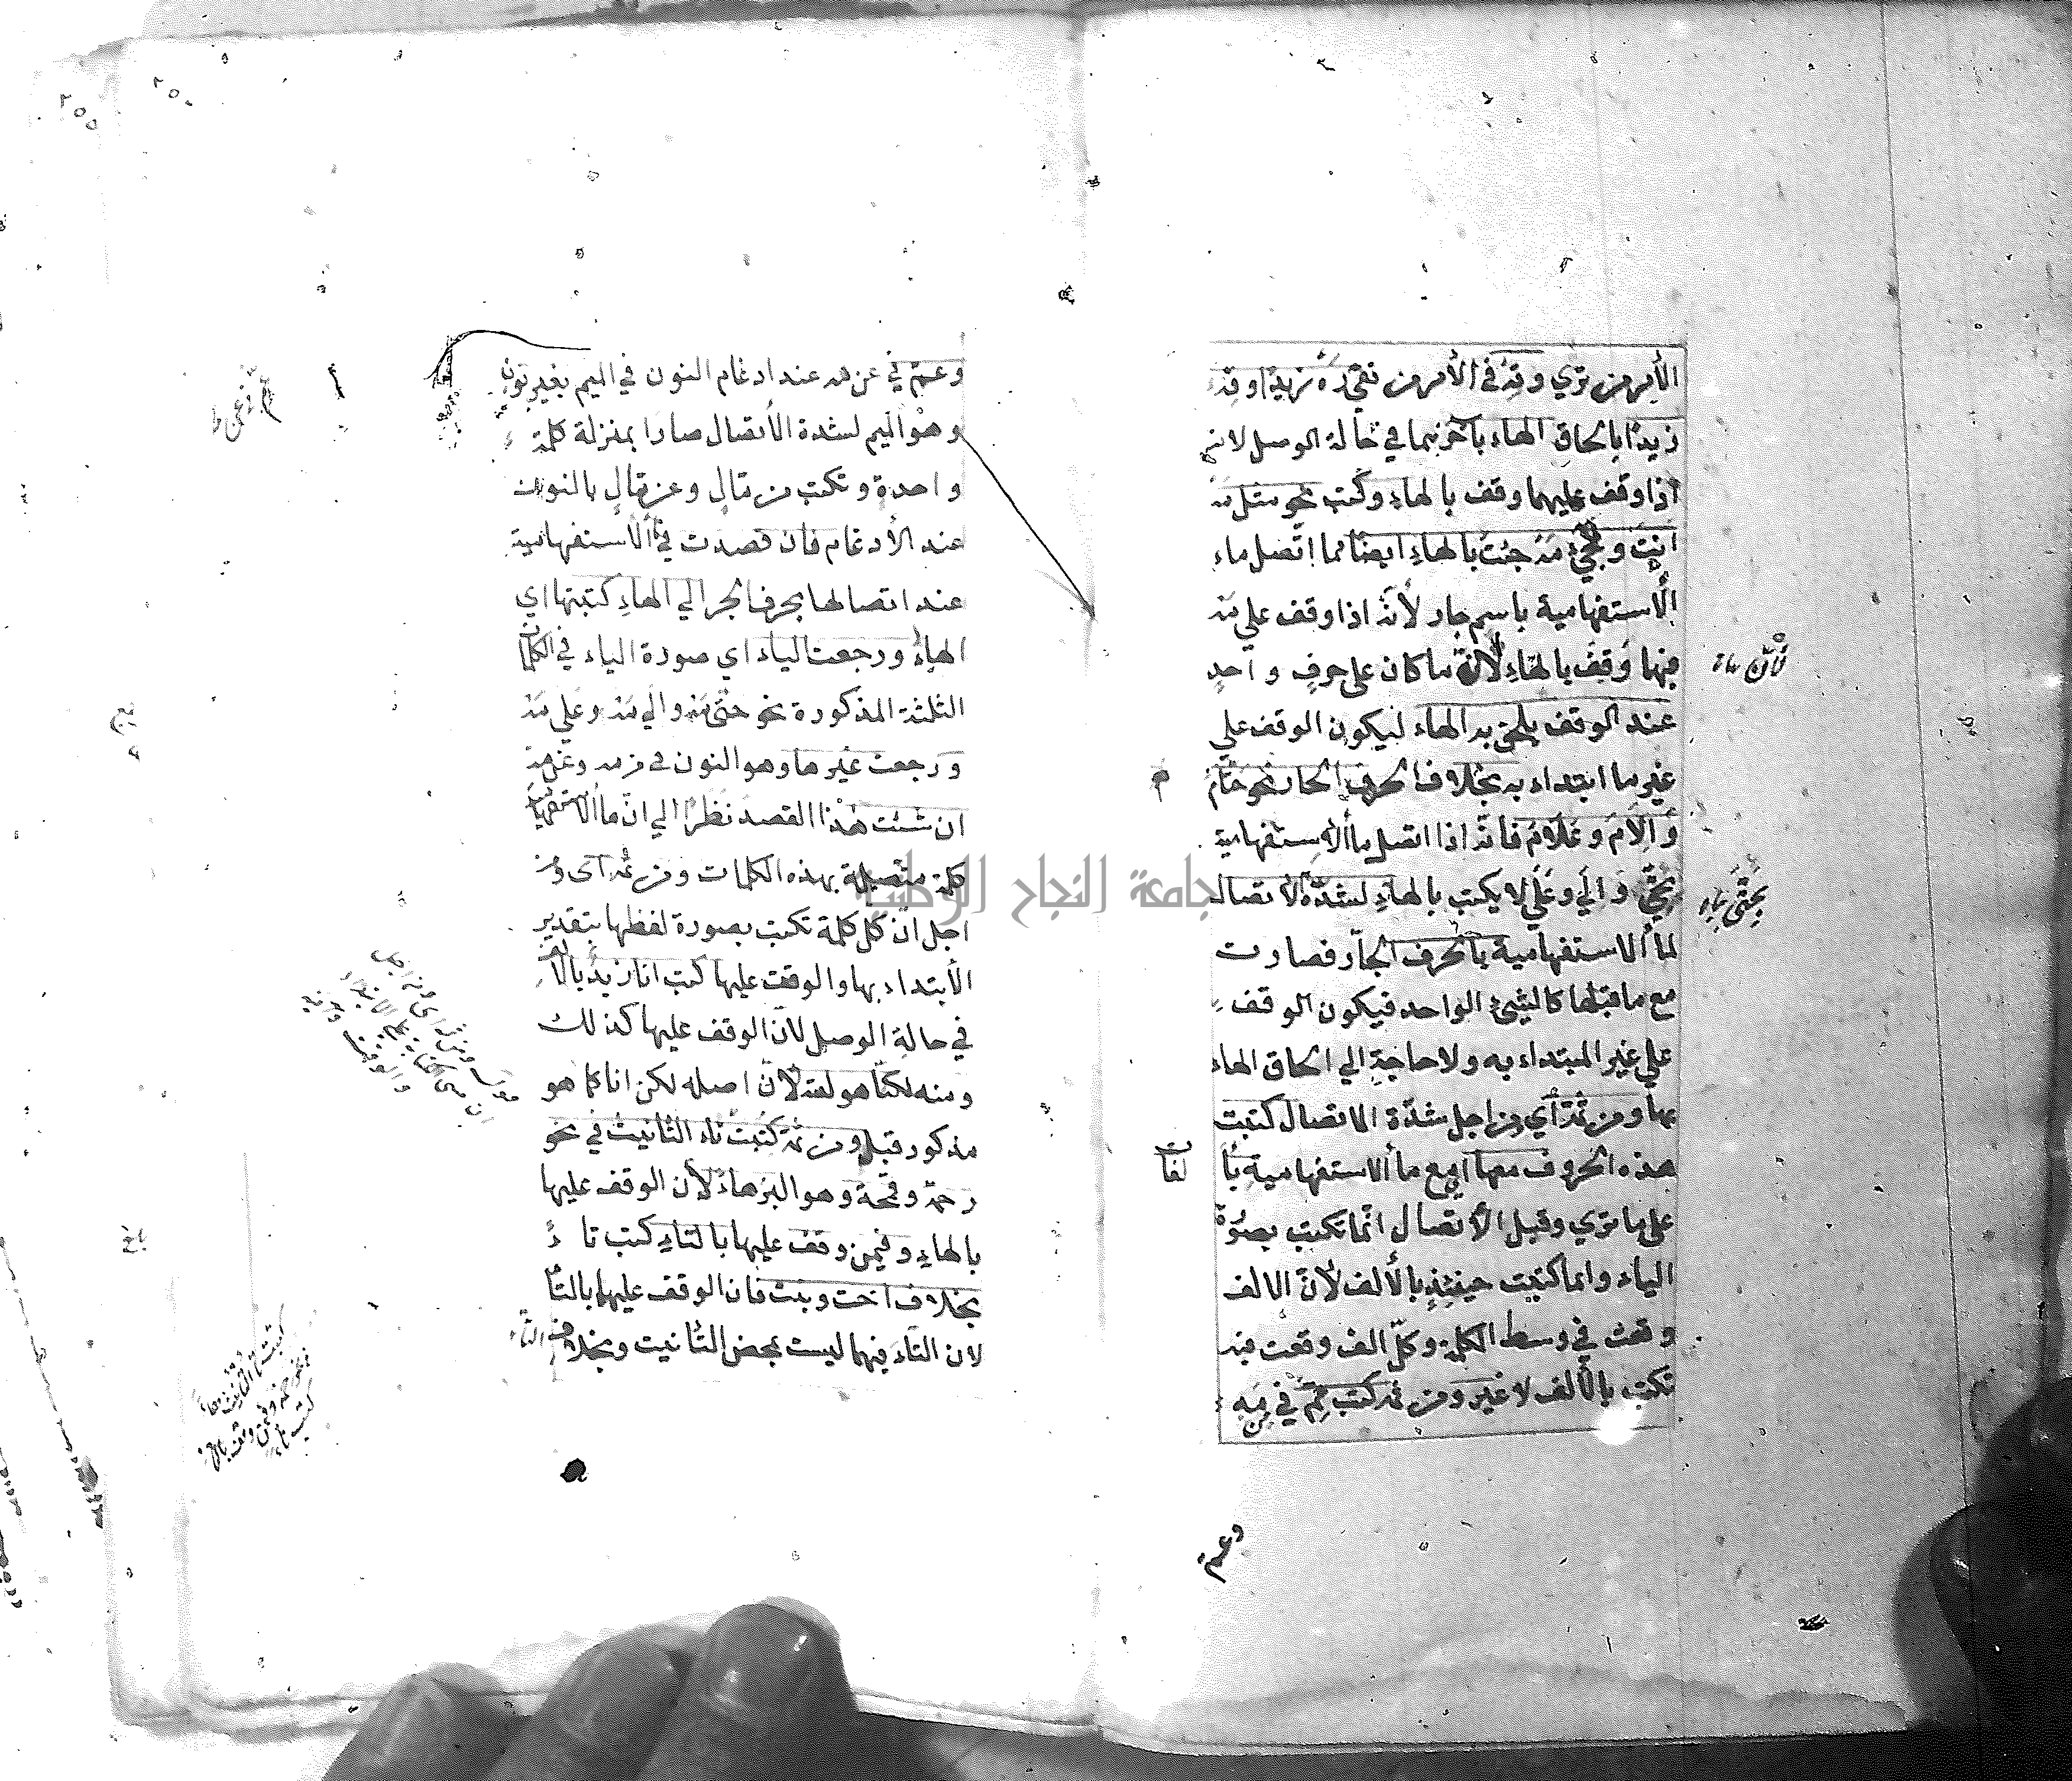 الأمر من تري وقِهْ في الأمر من تقي رَهْ زيدًا وقِهْ
زيدًا بالحاق الهاء بآخرهما في حالة الوصل لانه
اذا وقف عليهما وقف بالهاءِ وكُتب نحو مثل مَهْ
انتَ ومجيءَ مَهْ جئتَ بالهاءِ ايضًا مما اتّصل ماء
الاستفهامية باسم جار لأنّه اذا وقف علي مَهْ
فيها وُقِفَ بالهاءِ لأنّ ما كان علي حرفٍ واحدٍ
عند الوقف يلحق به الهاء ليكون الوقف علي
غير ما ابتداء به بخلاف الحرف الجار نحو حتّامَ
وَالامَ وعَلامَ فانّه اذا اتصل ما الاستفهامية
بحتّي والي وعَلي لا يكتب بالهاءِ لشدّة الاتصال
لما الاستفهامية بالحرف الجارّ فصارت
مع ما قبلها كالشيئ الواحد فيكون الوقف
علي غير المبتداء به ولا حاجةِ الي الحاق الهاء
بها ومن ثمّه أي من اجل شدّة الاتصال كتبت
هذه الحروف معها اي مع ما الاستفهاميةِ با
لفات
علي ما تري وقبل الأتصال انّما تكتب بصورة
الياء وانما كتبت حينئذٍ بالألف لأنّ الالف
وقعت في وسط الكلمة وكلّ الف وقعت فيه
تكتب بالألف لا غير ومن ثمه كتب مِمّ في مِن مَهْ
وعمّ
فأنّه ماء
بحتّي ياء
وعَمّ في عن مه عند ادغام النون في الميم بغير نون
وهو الميم لشدة الأتصال صارا بمنزلة كلمة
واحدة وتكتب من قال وعن قال بالنون
عند الأدغام فان قصدت في ما الاستفهامية
عند اتصالها بحرف الجر الي الهاءِ كتبتها اي
الهاءُ ورجعت الياء اي صورة الياء في الكلمات
الثلثة المذكورة نحو حتي مَهْ والي مَهْ وعلي مَهْ
ورجعت غيرها وهو النون في من مه وعن مه
ان شئت هذا القصد نَظرًا الي انّ ما الاستفهامية
كلمة متصلة بهذه الكلمات ومن ثمه اي ومن
اجل انّ كل كلمة تكتب بصورة لفظها بتقدير
الأبتداء بها والوقف عليها كتب انا زيد بالالف
في حالة الوصل لانّ الوقف عليها كذلك
ومنه لكنّا هو لفه لأنّ اصله لكن انا كما هو
مذكور قبل ومن ثمه كتبت تاء التانيث في نحو
رحمة وقمحة وهو البر هاءً لأن الوقف عليها
بالهاءِ وفيمن وقف عليها بالتاءِ كتب تاءً
بخلاف اخت وبنت فان الوقف عليها بالتا
لان التاءَ فيهما ليست بمحض التانيت وبخلاف